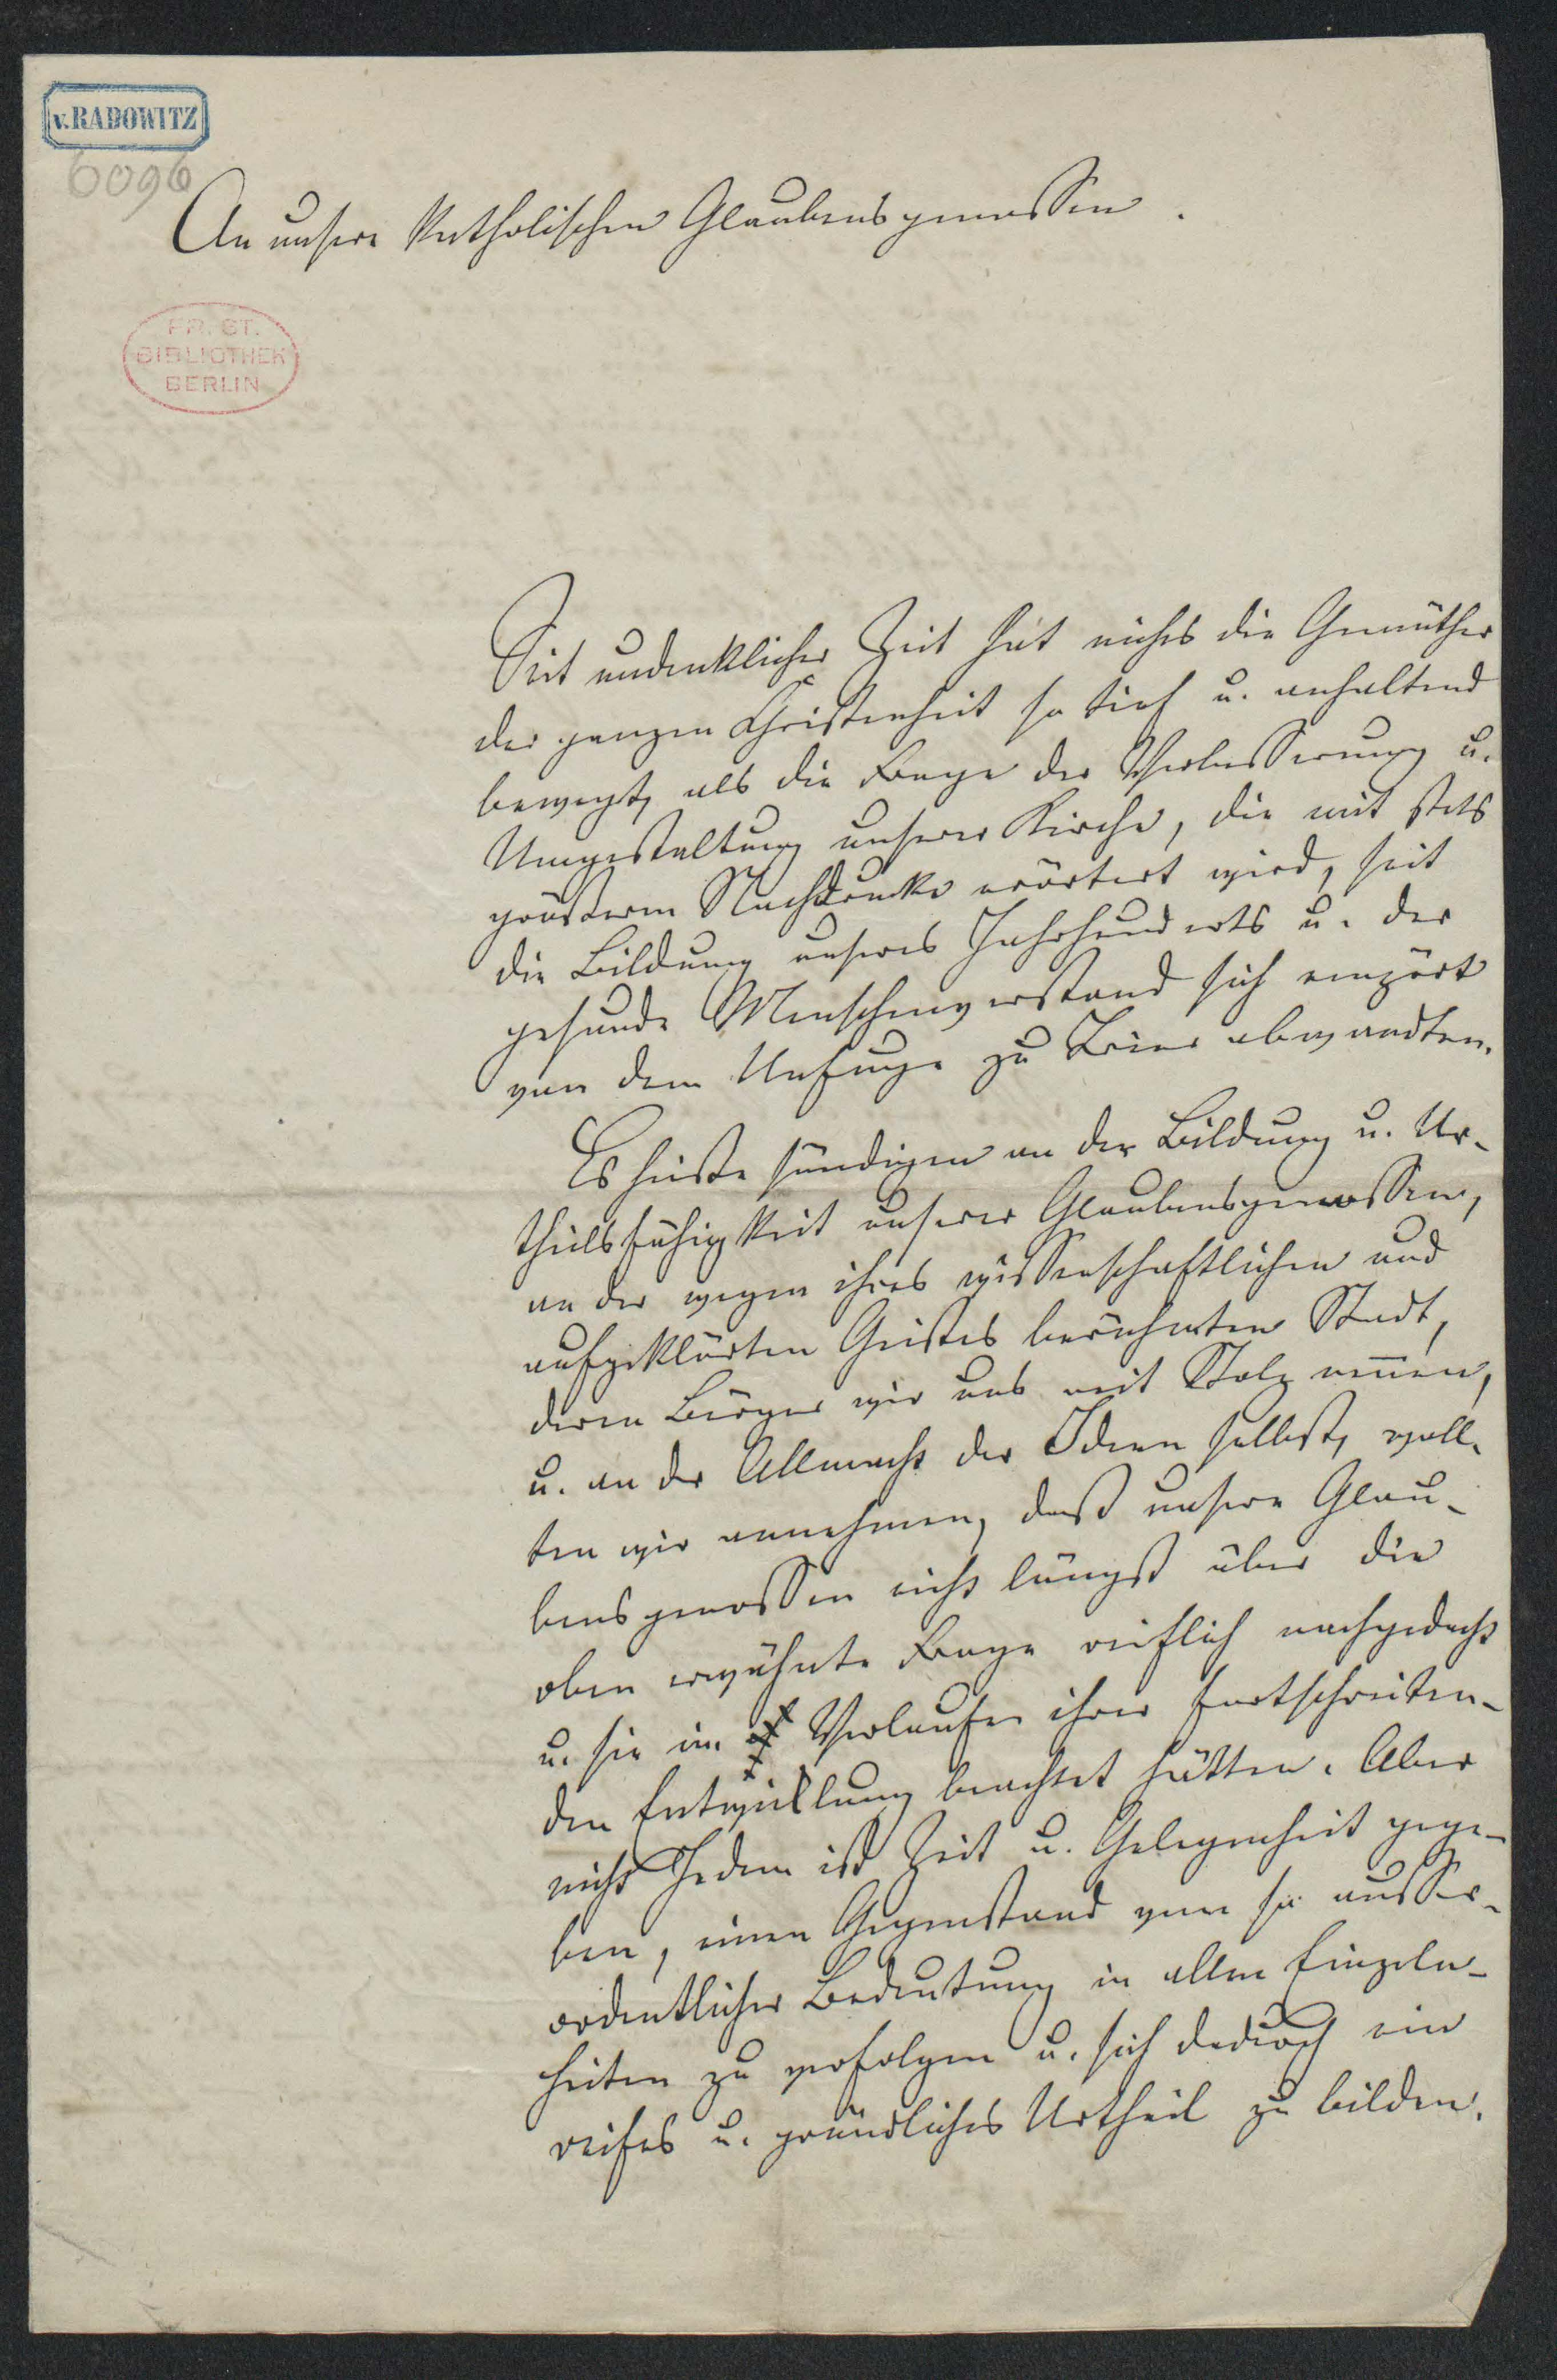 v. RADOWITZ
6096
An unsere katholischen Glaubensgenossen.
PR. ST.
BIBLIOTHEK
BERLIN
Seit undenklicher Zeit hat nichts die Gemüther
der ganzen Christenheit so tief u. anhaltend
bewegt, als die Frage der Verbesserung u.
Umgestaltung unserer Kirche, die mit stets
größerem Nachdrucke erörtert wird, seit
die Bildung unseres Jahrhunderts u. der
gesunde Menschenverstand sich empört
von dem Unfuge zu Trier abwandten.
Es hieße sündigen an der Bildung u. Ur-
theilsfähigkeit unserer Glaubensgenossen,
an der wegen ihres wissenschaftlichen und
aufgeklärten Geistes berühmten Stadt,
deren Bürger wir uns mit Stolz nennen,
u. an der Allmacht der Ideen selbst, woll-
ten wir annehmen, daß unsere Glau-
bensgenossen nicht längst über die
oben erwähnte Frage reiflich nachgedacht
u. sie im Verlaufe ihrer fortschreiten-
den Entwicklung beachtet hätten. Aber
nicht Jedem ist Zeit u. Gelegenheit gege-
ben, einen Gegenstand von so ausser-
ordentlicher Bedeutung in allen Einzeln-
heiten zu verfolgen u. sich dadurch ein
reifes u. gründliches Urtheil zu bilden.